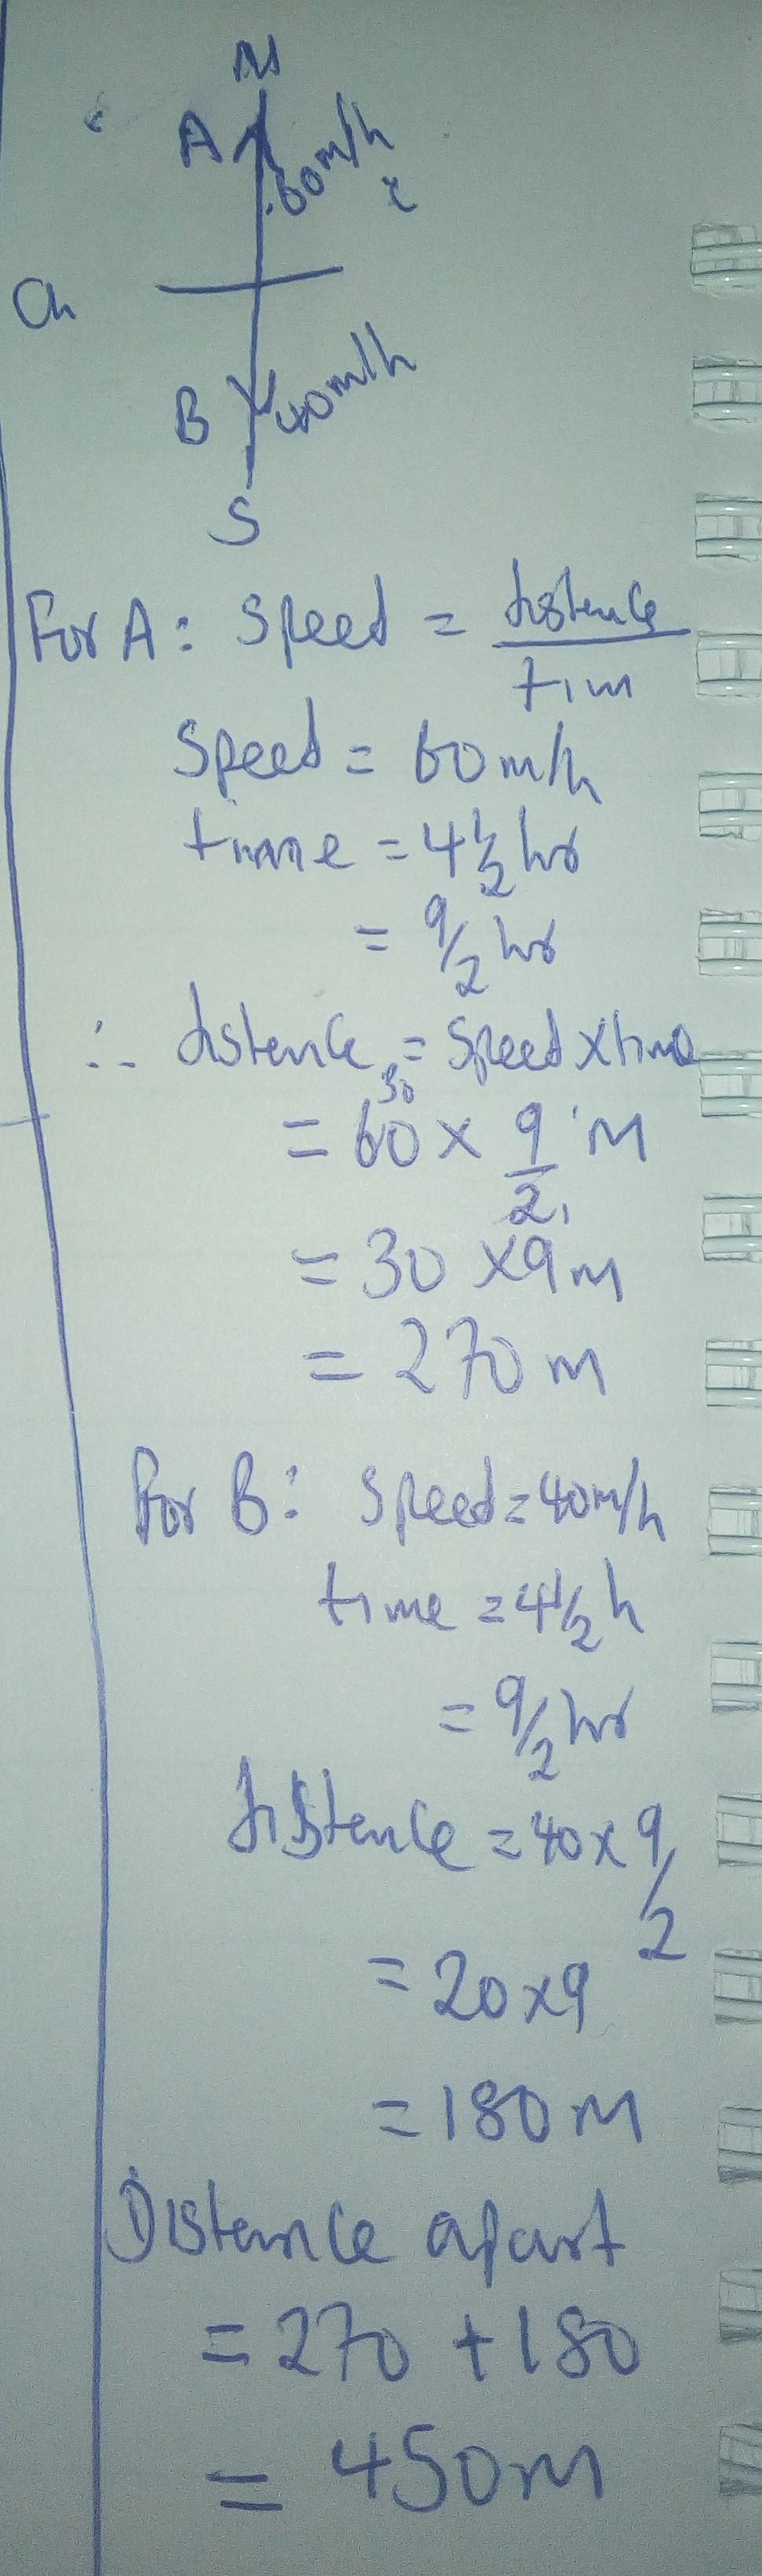 N
A 60m/h
B 40m/h
S
For A: Speed = distance
time
Speed = 60m/h
time = 4½ hrs
= 9/2 hrs
∴ distance = Speed x time
30
= 60 x 9 M
2 1
= 30 x 9m
= 270m
For B: Speed = 40m/h
time = 4½ h
= 9/2 hrs
distance = 40 x 9/2
= 20x9
= 180M
Distance apart
= 270 + 180
= 450m